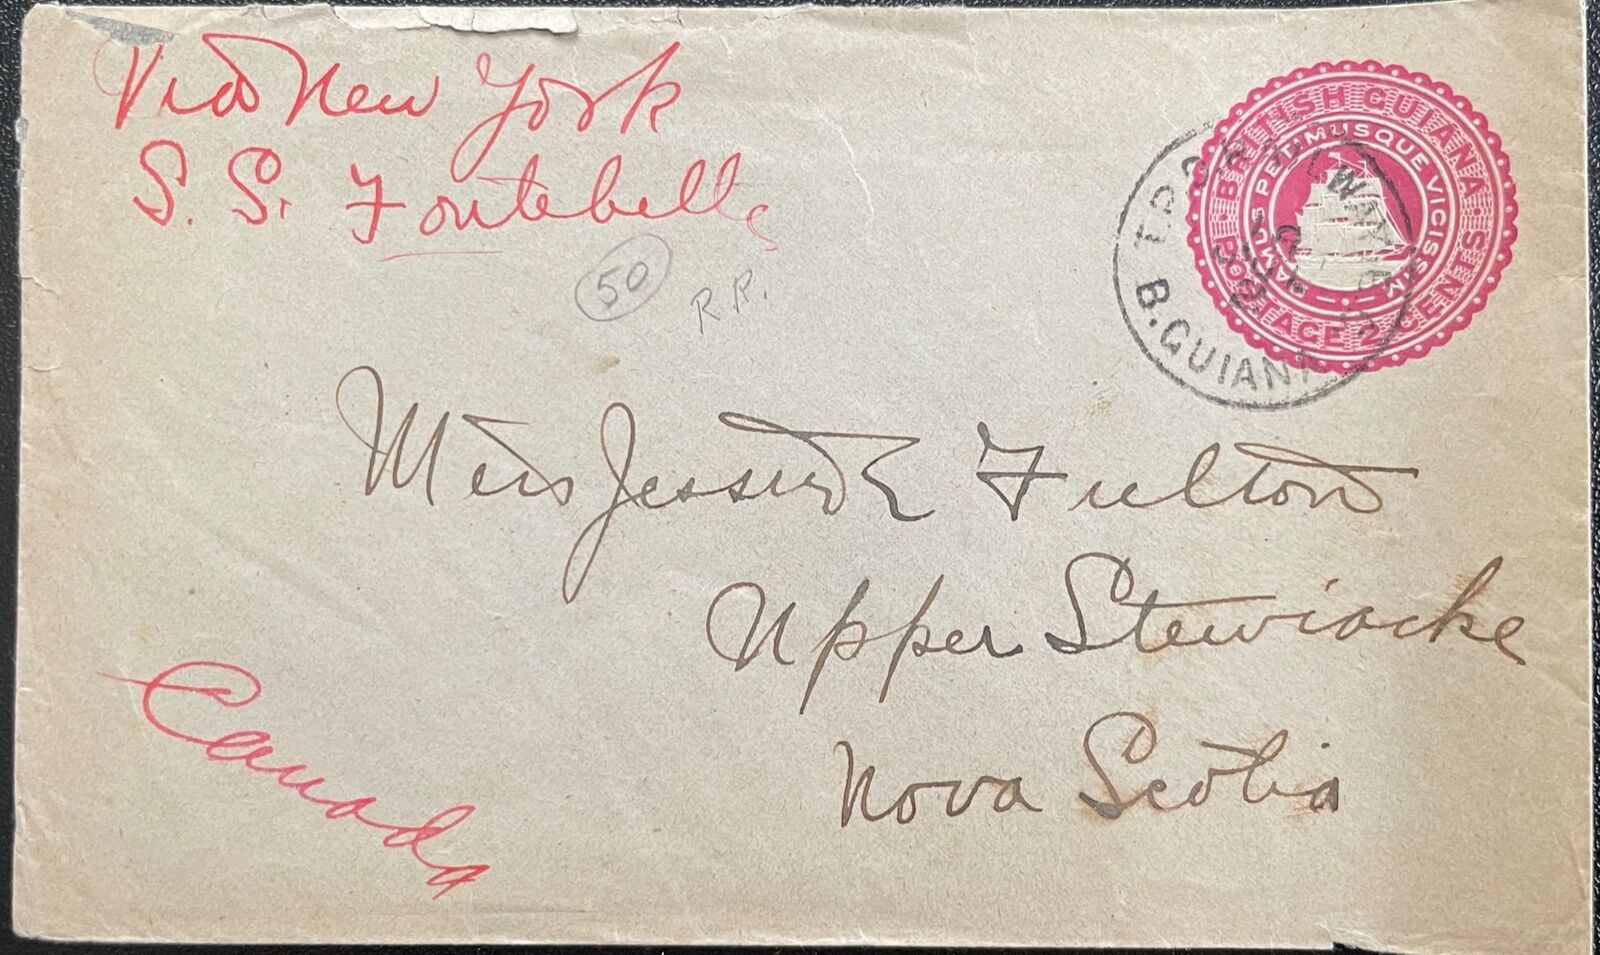 Via New York
S. S. Fontebelle
BRITISH GUIANA
DAMUS PETIMUSQUE VICISSIM
POSTAGE 2 CENTS
B. GUIANA
50
R.R.
Miss Jessie E Fulton
Upper Stewiacke
Nova Scotia
Canada